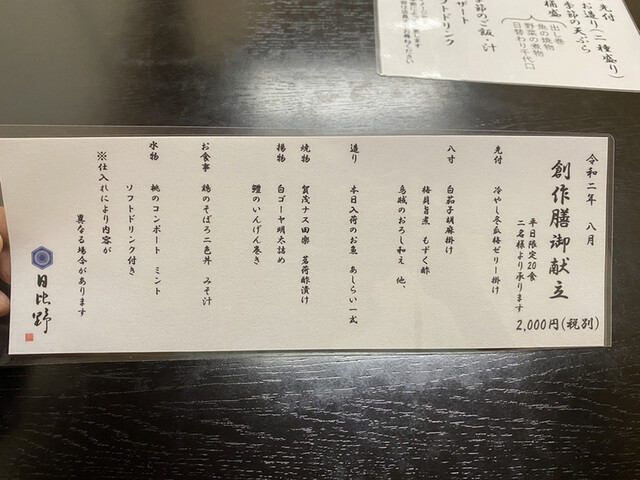 令和二年 八月
創作膳御献立
平日限定20食
二名様より承ります
2,000円(税別)
先付 冷やし冬瓜梅ゼリー掛け
八寸 白茄子胡麻掛け
梅貝旨煮 もずく酢
烏賊のおろし和え 他、
造り 本日入荷のお魚 あしらい一式
焼物 賀茂ナス田楽 茗荷酢漬け
揚物 白ゴーヤ明太詰め
鱧のいんげん巻き
お食事 鶏のそぼろ二色丼 みそ汁
水物 桃のコンポート ミント
ソフトドリンク付き
※仕入れにより内容が
異なる場合があります
日比野
先付
お造り(二種盛り)
季節の天ぷら
桶盛
出し巻
魚の焼物
野菜の煮物
日替わり千代口
季節のご飯・汁
デザート
ソフトドリンク